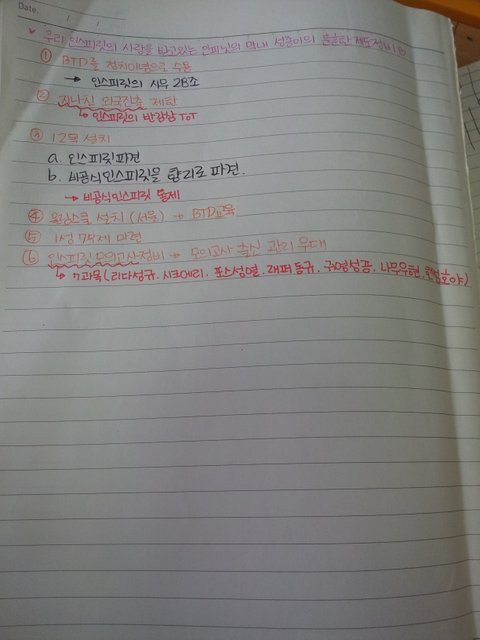 Date.
♥ 우리 인스피릿의 사랑을 받고있는 인피닛의 막내 성종이의 제도정비
① BTD를 정치이념으로 수용
→ 인스피릿의 시무 28조
② 지나친 외국진출 제한
↳ 인스피릿의 반강상 ToT
③ 12목 설치
a. 인스피릿파견
b. 비공식인스피릿을 향리로 파견.
→ 비공식인스피릿 통제
④ 설치 (서울) → BTD교육
⑤ 1성 7규제 마련
⑥ 인스피릿 모의고사정비 → 모의고사 출신 관리 우대
↳ 7과목 (리다성규. 시크에리. 포스성열. 래퍼동규. 성종. 나무우현. 호야)